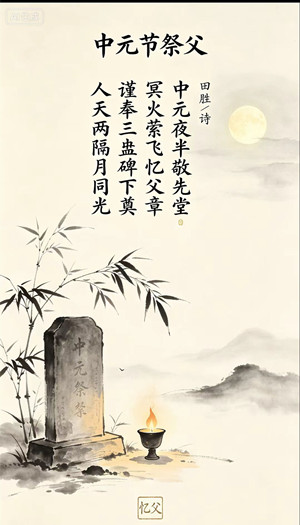 中元节祭父
田胜/诗
中元夜半敬先堂
冥火萦飞忆父章
谨奉三盅碑下奠
人天两隔月同光
中元祭祭
忆父